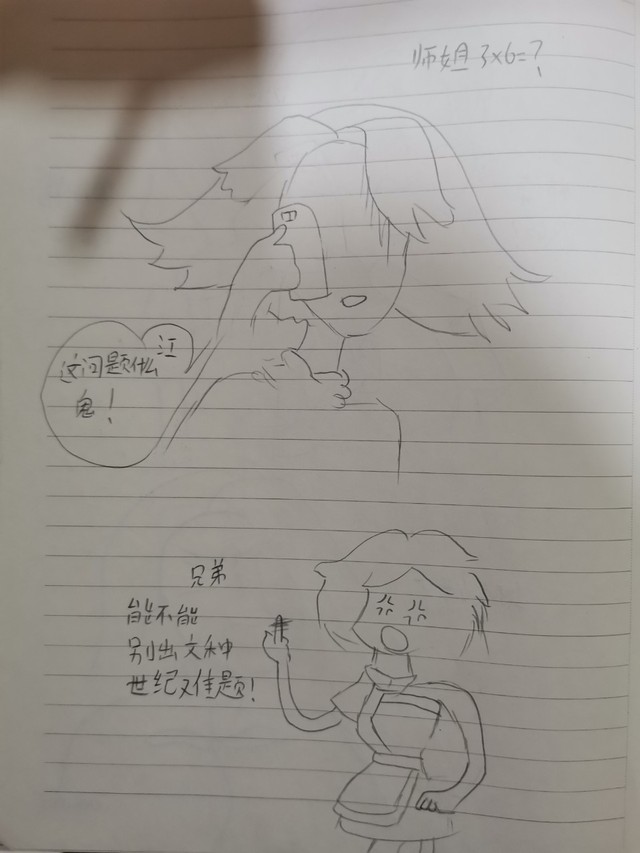 师姐 3×6=?
江
这问题什么
鬼!
兄弟
能不能
别出这种
世纪难题!